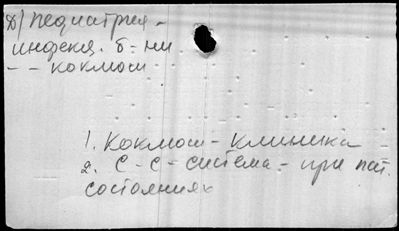 Д) Педиатрия -
индекц. б-ни
- - коклюш
1. Коклюш - клиника
2. С-С-система - при пат.
состояниях